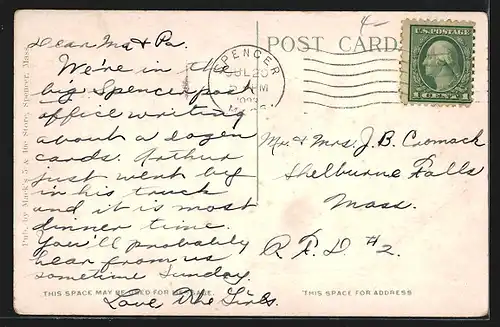 4-
Dear Ma & Pa.
We're in the
big Spencer post
office writing
about a dozen
cards. Arthur
just went by
in his truck
and it is most
dinner time.
You'll probably
hear from us
sometime Sunday.
Love The Girls.
THIS SPACE MAY BE USED FOR MESSAGE.
Pub. by Mack's 5 & 10c Store, Spencer, Mass.
SPENCER
JUL 20
M
MASS.
POST CARD
U.S. POSTAGE
1 CENT 1
Mr. & Mrs. J. B. Cromack
Shelburne Falls
Mass.
R.F.D #2.
THIS SPACE FOR ADDRESS